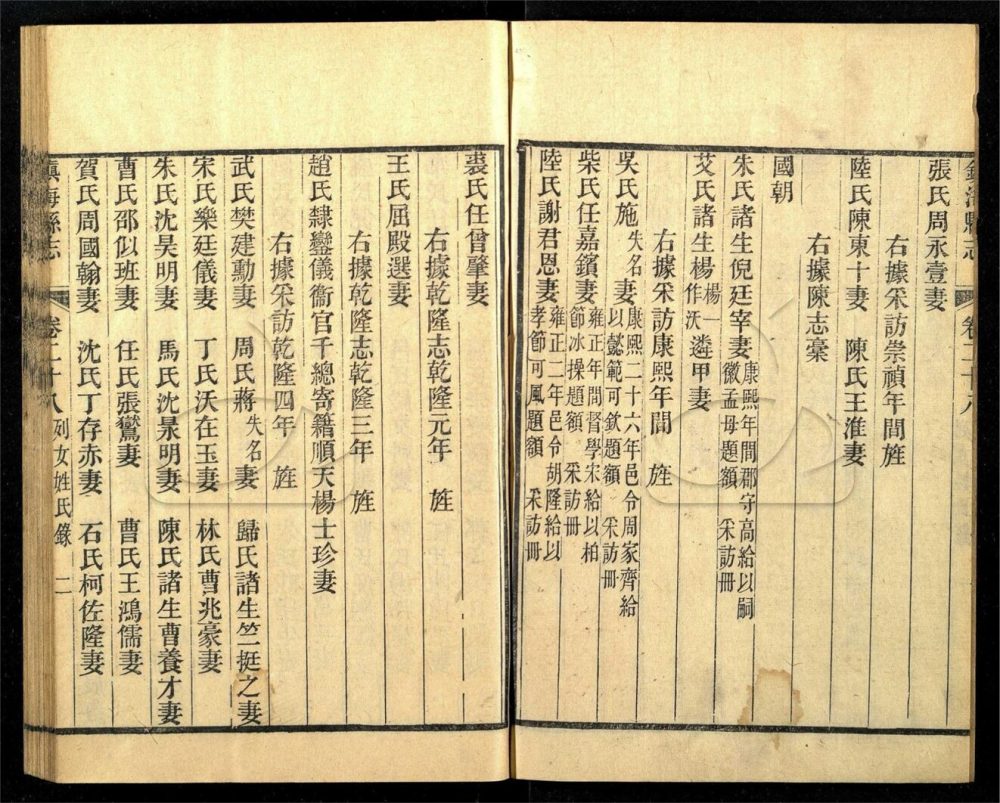 鎮海縣志 卷二十八
張氏周永壹妻
右據采訪崇禎年間旌
陸氏陳東十妻 陳氏王淮妻
右據陳志稾
國朝
朱氏諸生倪廷宰妻康熙年間郡守高給以嗣徽孟母題額 采訪冊
艾氏諸生楊楊一作沃遴甲妻
右據采訪康熙年間 旌
吳氏施失名妻康熙二十六年邑令周家齊給以懿範可欽題額 采訪冊
柴氏任嘉鑌妻雍正年間督學宋給以柏節冰操題額 采訪冊
陸氏謝君恩妻雍正二年邑令胡隆給以孝節可風題額 采訪冊
裘氏任曾肇妻
右據乾隆志乾隆元年 旌
王氏屈殿選妻
右據乾隆志乾隆三年 旌
趙氏隸鑾儀衞官千總寄籍順天楊士珍妻
右據采訪乾隆四年 旌
武氏樊建勳妻 周氏蔣失名妻 歸氏諸生竺挺之妻
宋氏樂廷儀妻 丁氏沃在玉妻 林氏曹兆豪妻
朱氏沈昊明妻 馬氏沈杲明妻 陳氏諸生曹養才妻
曹氏邵似班妻 任氏張鸞妻 曹氏王鴻儒妻
賀氏周國翰妻 沈氏丁存赤妻 石氏柯佐隆妻
鎮海縣志 卷二十八 列女姓氏錄 二